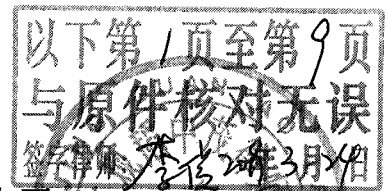 以下第1页至第9页
与原件核对无误
签字律师 李 年3月24日